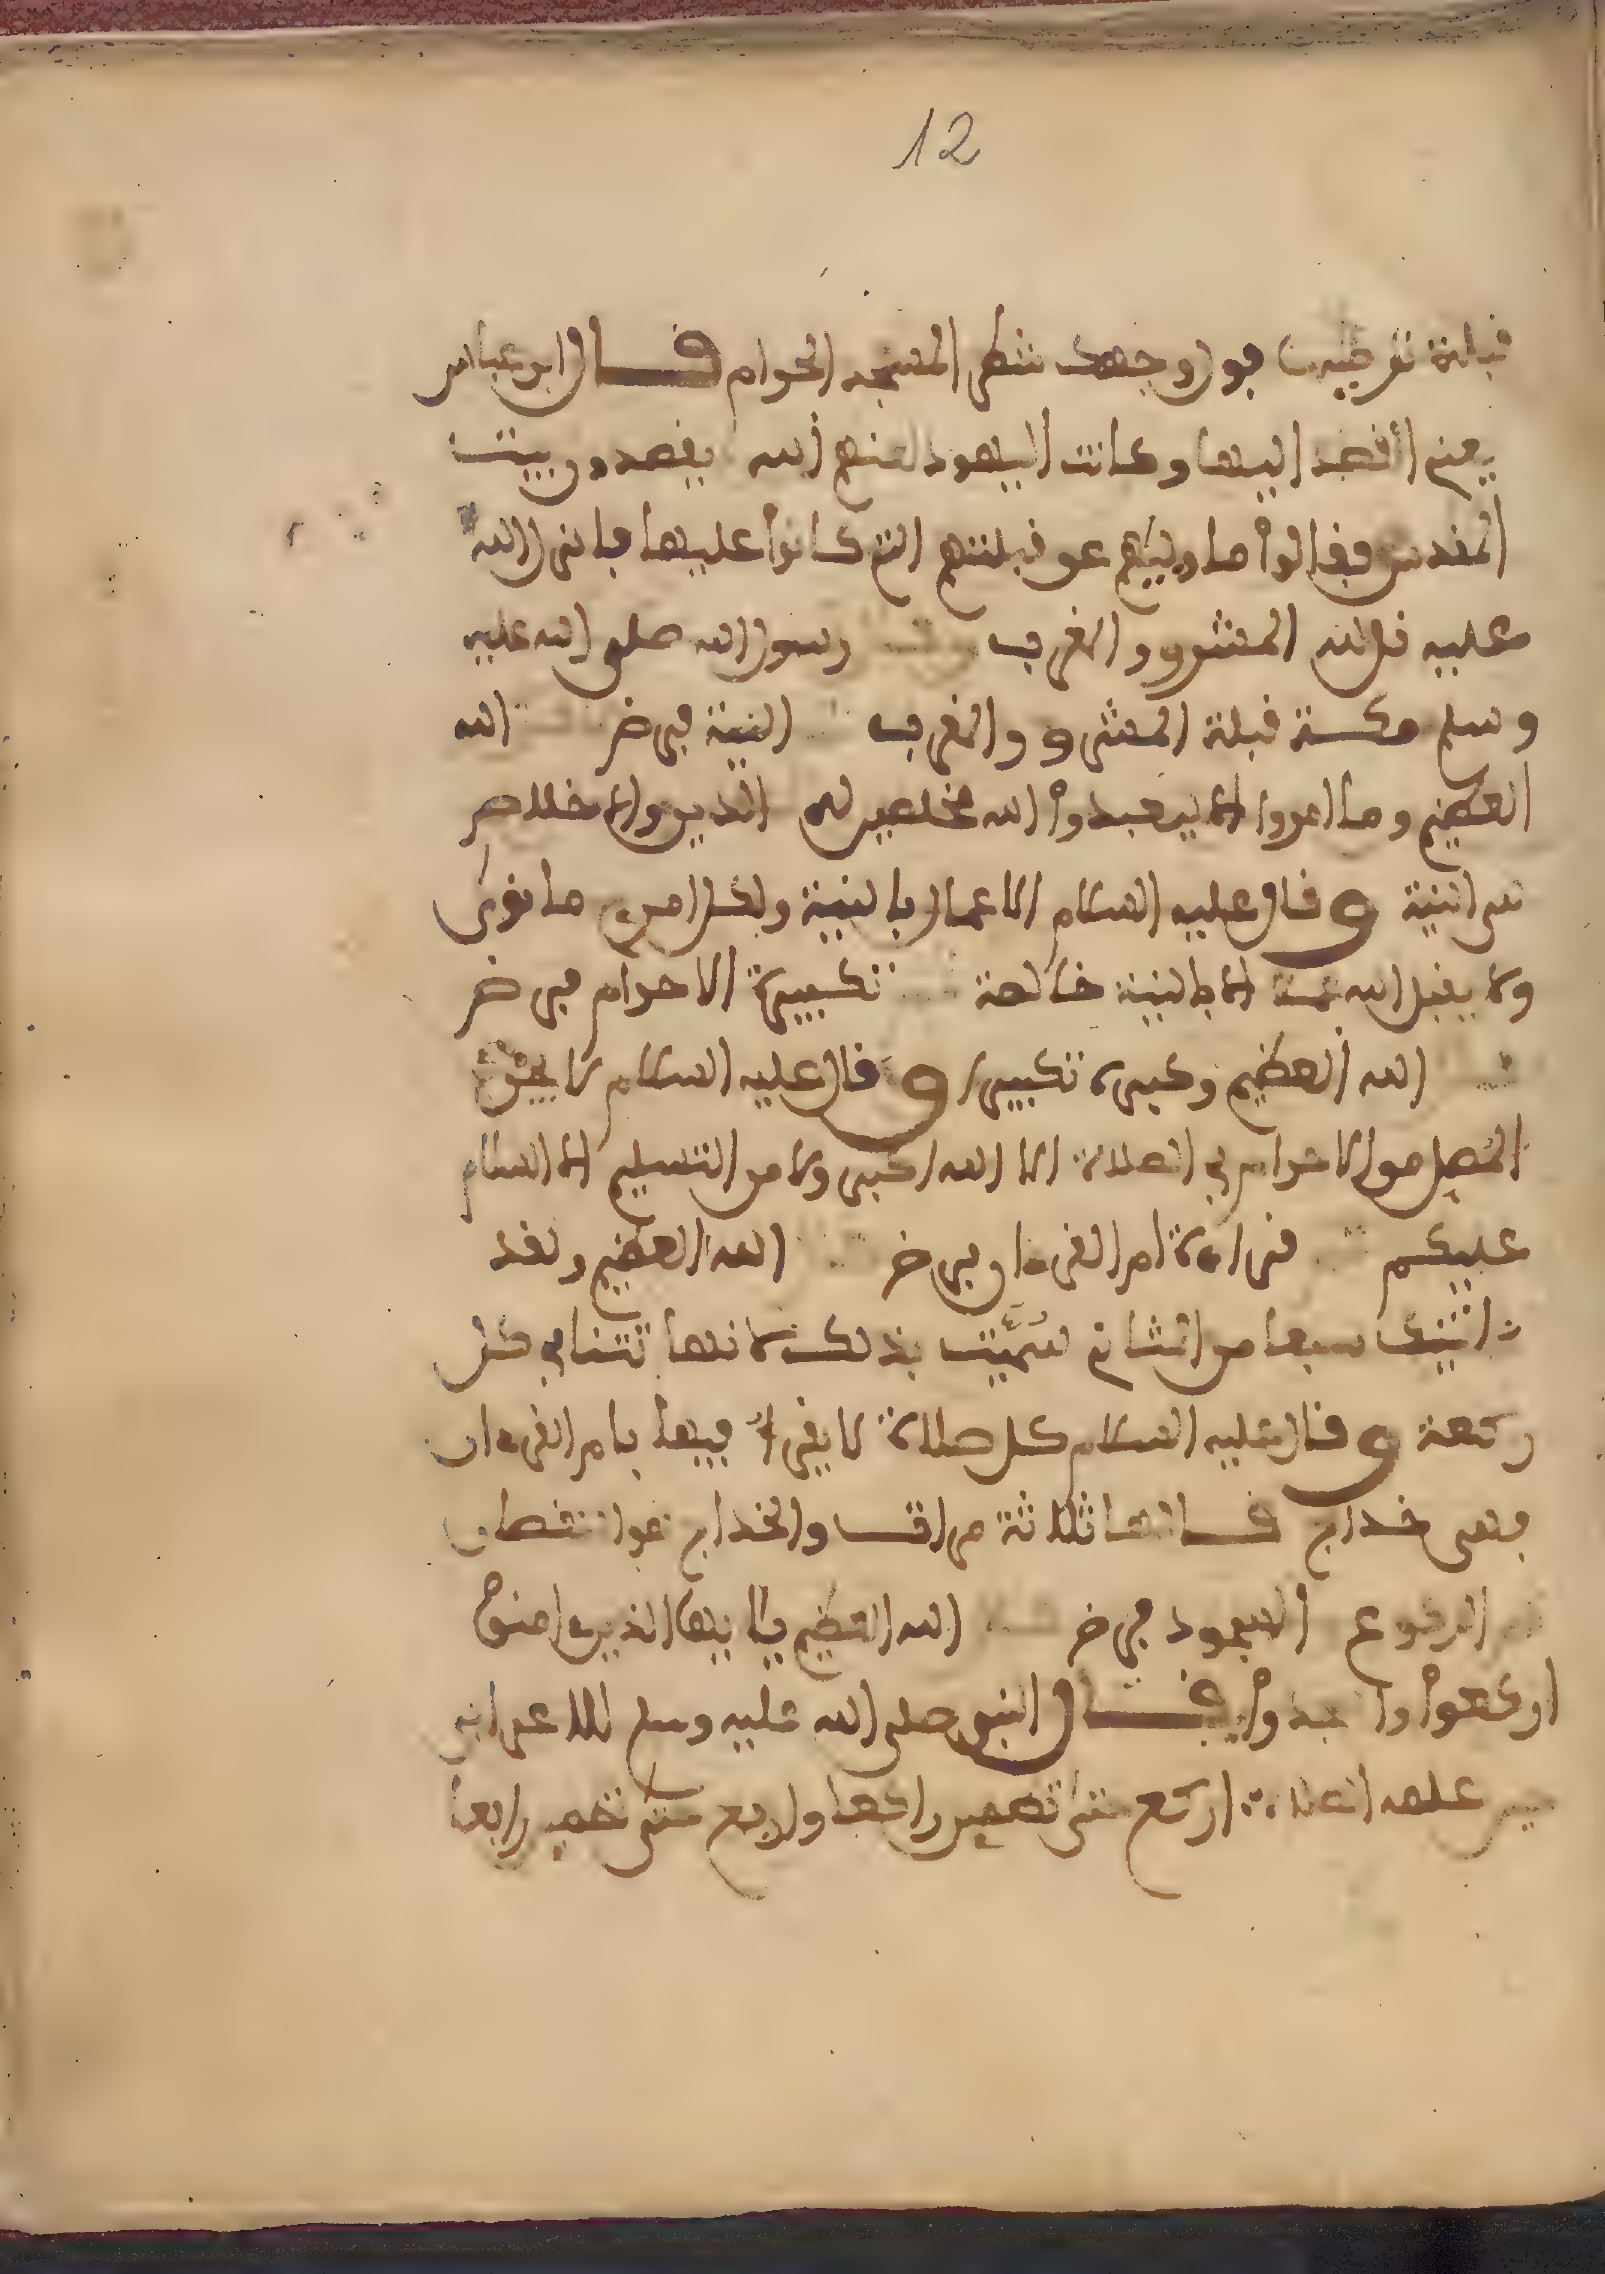 12
قبلة ترضيها فول وجهك شطر المسجد الحرام قال ابن عباس
يعني اقصد اليها وكانت اليهود لعنهم الله يقصدون بيت
المقدس فقالوا ما وليهم عن قبلتهم التي كانوا عليها فانزل الله
عليه قل لله المشرق والمغرب رسول الله صلى الله عليه
وسلم مكة قبلة المشرق والمغرب النية فرض الله
العظيم وما امروا الا ليعبدوا الله مخلصين له الدين والاخلاص
هي النية وقال عليه السلام الاعمال بالنية ولكل امرئ ما نوى
ولا يقبل الله الا بالنية خالصة تكبيرة الاحرام فرض
الله العظيم وكبره تكبيرا وقال عليه السلام لا يجزئ
المصلي من الاحرام في الصلاة الا الله اكبر ولا من التسليم الا السلام
عليكم قراءة ام القرءان فرض الله العظيم ولقد
اتينك سبعا من المثاني سميت بذلك لانها تثنا في كل
ركعة وقال عليه السلام كل صلاة لا يقرأ فيها بام القرءان
فهي خداج قالها ثلاثة مرات والخداج هو النقصان
الركوع السجود فرض الله العظيم يا ايها الذين ءامنوا
اركعوا واسجدوا فقال النبي صلى الله عليه وسلم للاعرابي
علمه الصلاة اركع حتى تطمئن راكعا وارفع حتى رافعا